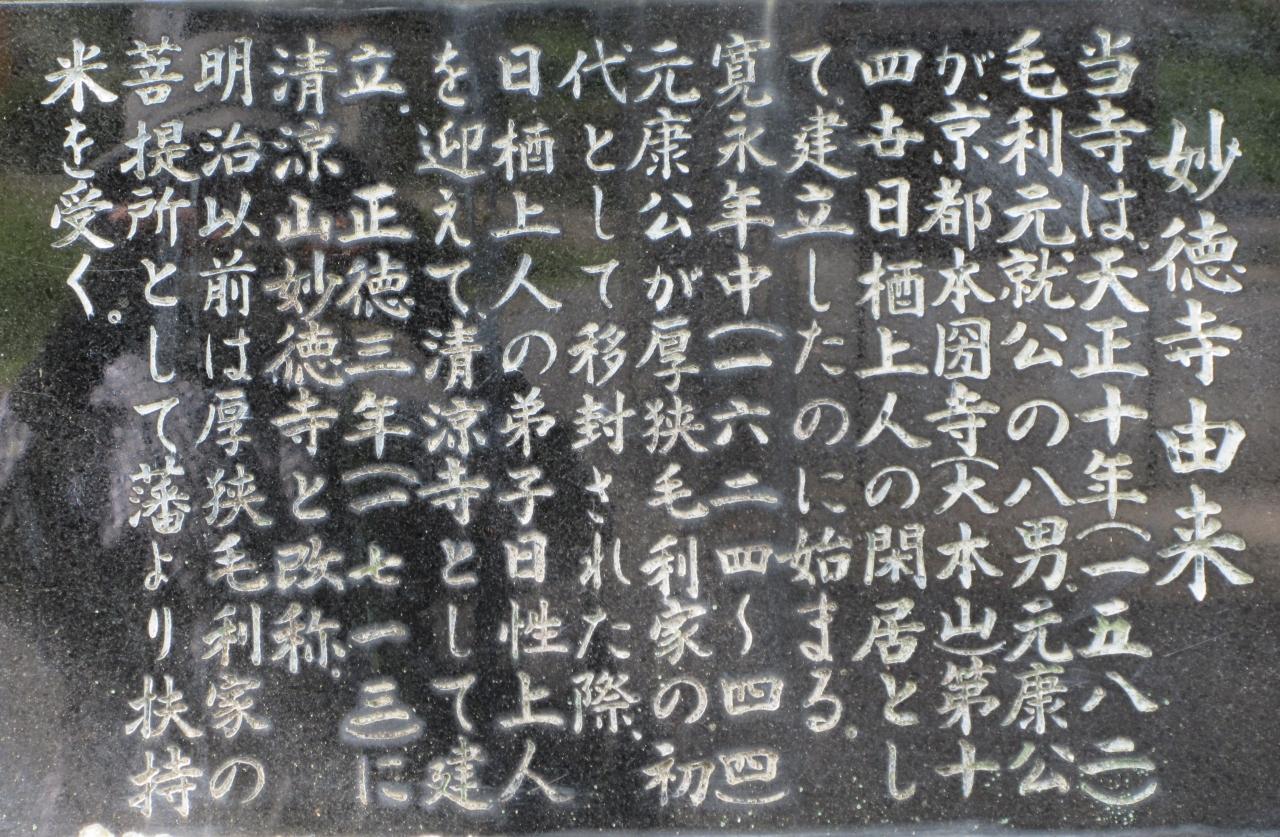 妙徳寺由来
当寺は天正十年(一五八二)
毛利元就公の八男、元康公
が、京都本圀寺(大本山)第十
四世日栖上人の閑居とし
て、建立したのに始まる。
寛永年中(一六二四〜四四)
元康公が厚狭毛利家の初
代として移封された際、
日栖上人の弟子日性上人
を迎えて、清涼寺として建
立。正徳三年(一七一三)に
清涼山妙徳寺と改称。
明治以前は厚狭毛利家の
菩提所として藩より扶持
米を受く。